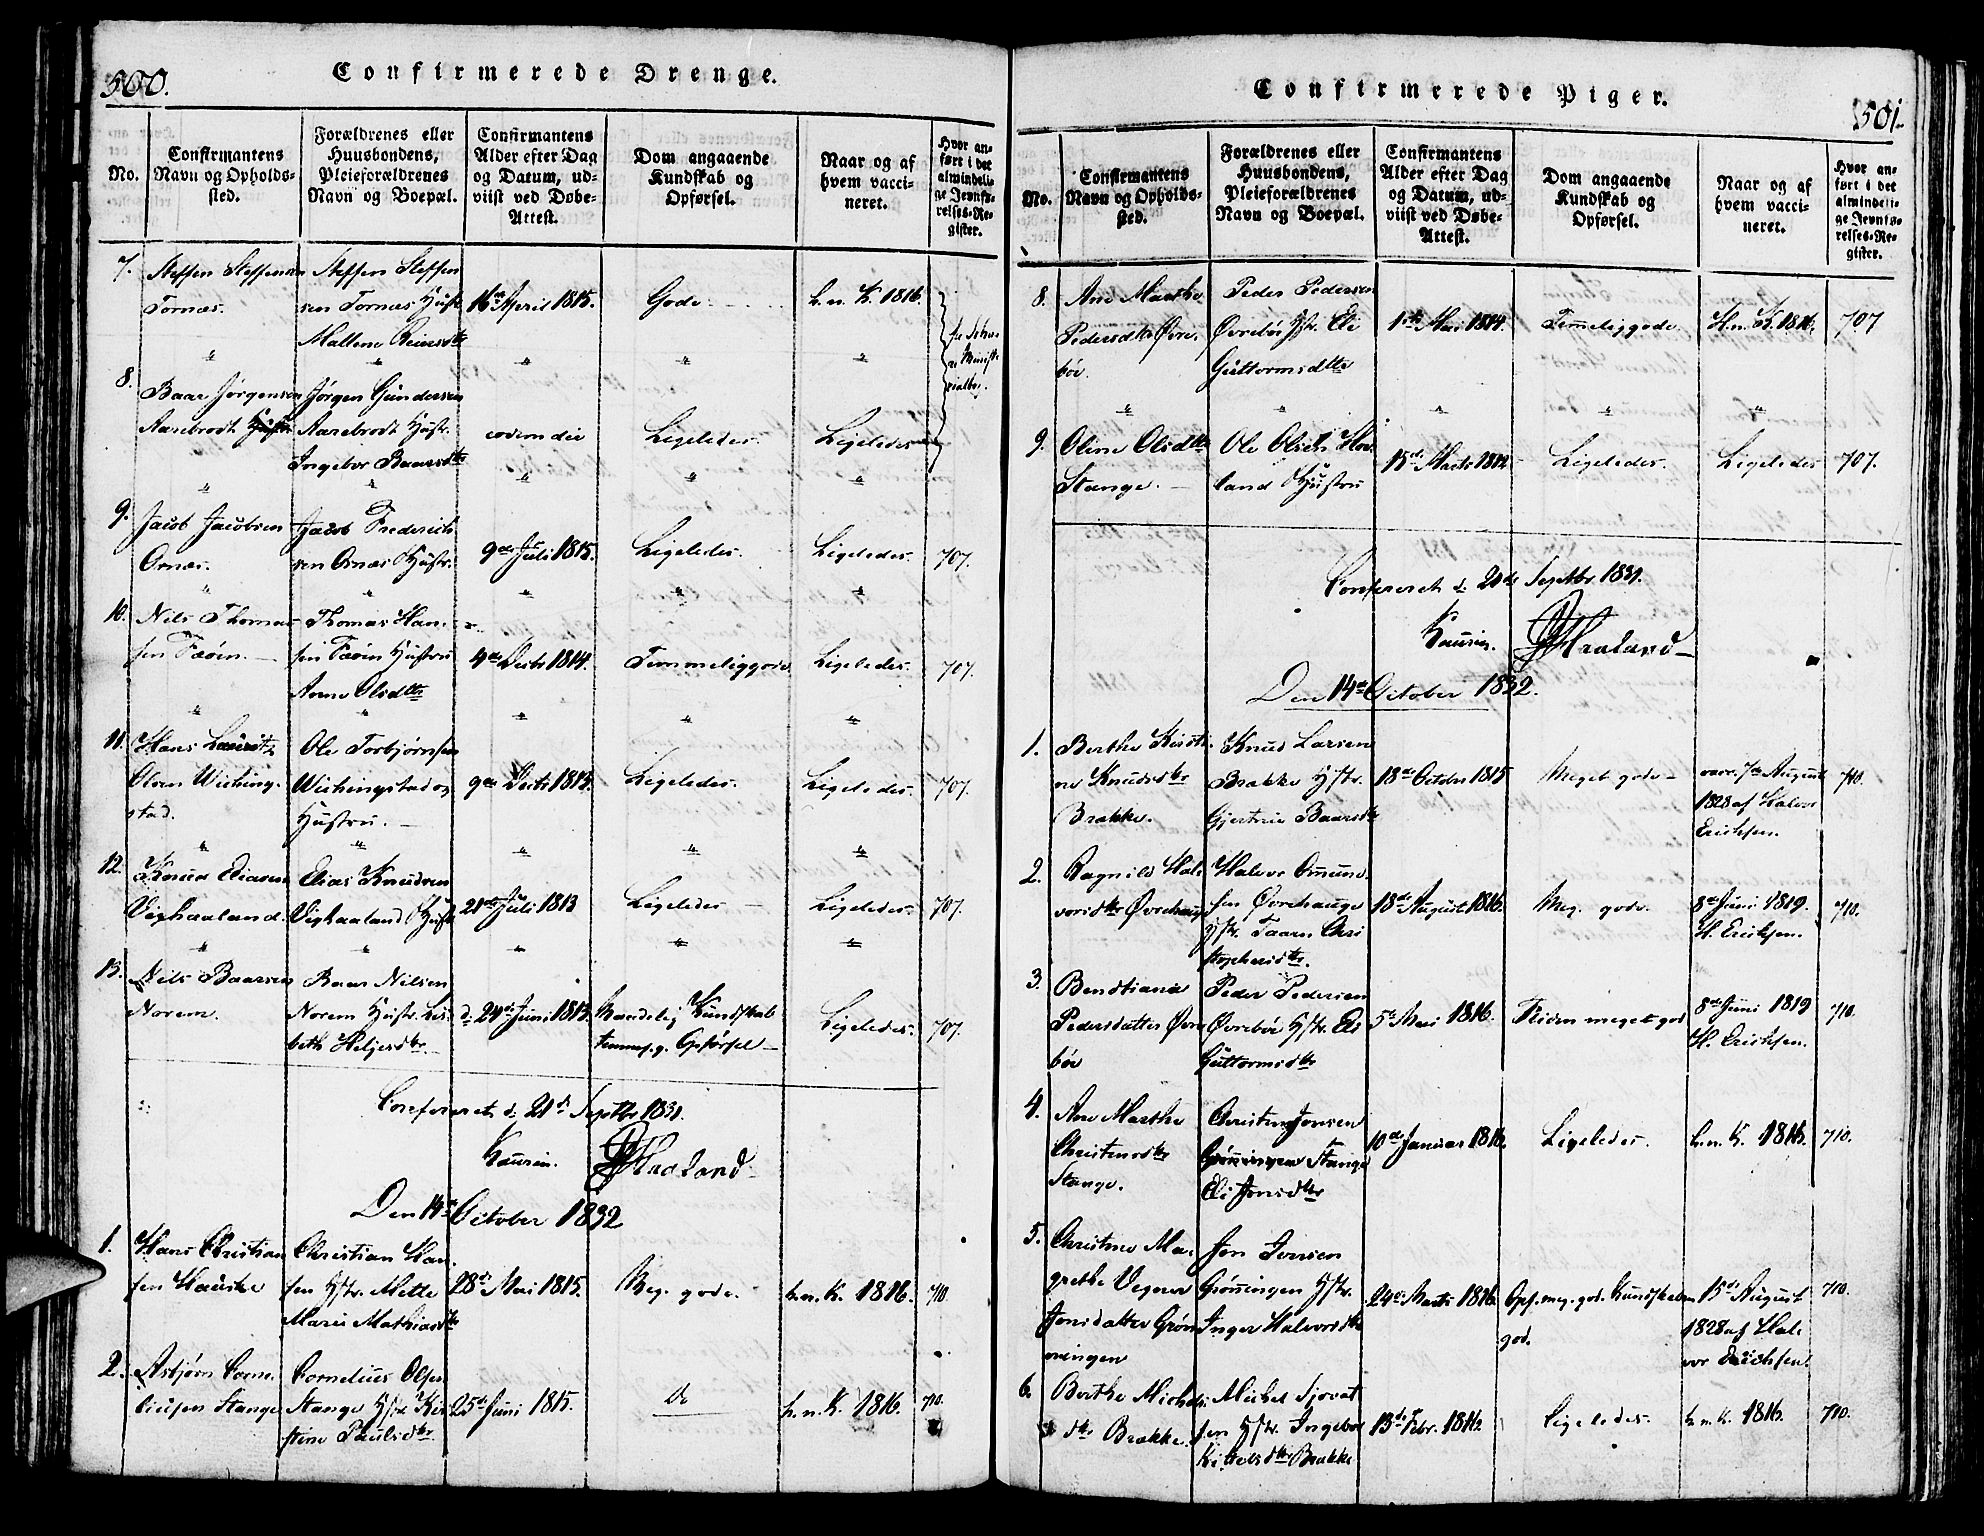 500.
Confirmerede Drenge.
No.
Confirmantens
Navn og Opholds-
sted.
Forældrenes eller
Huusbondens,
Pleieforældrenes
Navn og Boepæl.
Confirmantens
Alder efter Dag
og Datum, ud-
viist ved Døbe-
Attest.
Dom angaaende
Kundskab og
Opførsel.
Naar og af
hvem vacci-
neret.
Hvor an-
ført i det
almindeli-
ge Jevnfø-
relses-Re-
gister.
7.
Steffen Steffensen
Tornæs.
Steffen Steffen
sen Tornæs Hustr.
Mallene
16de April 1815.
Gode
h. n. K. 1816.
8.
Baar Jørgensen
Aarebrodt
Jørgen Gundersen
Aarebrodt Hustr.
Ingebor Baarsdtr
eodem die
Ligeledes.
Ligeledes
9.
Jacob Jacobsen
Ornæs.
Jacob Frederich
sen Ornæs Hustr.
9de Juli 1815.
Ligeledes.
Ligeledes.
707.
10.
Nils Thomas
sen Føøen.
Thomas Han-
sen Føøen Hustru
Anne Olsdtr
4de Decbr 1814.
Temmeliggode
Ligeledes.
707.
11.
Hans Lauritz
Olsen Wiching-
stad.
Ole Torbjørnsen
Wichingstad og
Hustru.
9de Decbr 1815.
Ligeledes.
Ligeledes.
707.
12.
Knud Eliasen
Vighaaland.
Elias Knudsen
Vighaaland Hustr
21de Juli 1813
Ligeledes
Ligeledes.
707.
13.
Nils Baarsen
Norem.
Baar Nilsen
Norem Hustr. Lis
beth Heljesdtr.
d. 24de Juni 1813.
Kundskab
temmel. g. Opførsel
Ligeledes.
707.
Confereret d. 21de Septbr 1831.
Kaurin.
Haaland
Den 14de October 1832
1.
Hans Christian
sen Hauske
Christian Han-
sen Hstr. Mette
Marie Mathiasdtr
28de Mai 1815.
Meg. gode.
h. n. K. 1816.
710.
2.
Asbjørn Corne-
liusen Stange
Cornelius Olsen
Stange Hstr Kir
stine Poulsdtr.
25de Juni 1815.
do
h. n. K. 1816.
710.
Confirmerede Piger.
501.
No.
Confirmantens
Navn og Opholds-
sted.
Forældrenes eller
Huusbondens,
Pleieforældrenes
Navn og Boepæl.
Confirmantens
Alder efter Dag
og Datum, ud-
viist ved Døbe-
Attest.
Dom angaaende
Kundskab og
Opførsel.
Naar og af
hvem vacci-
neret.
Hvor an-
ført i det
almindeli-
ge Jevnfø-
relses-Re-
gister.
8.
Ane Marthe
Pedersdtr Øvre-
bøe.
Peder Pedersen
Øvrebøe Hstr. Eli
Guttormsdtr
1ste Mai 1814.
Temeliggode.
H. n. K. 1816.
707
9.
Oline Olsdtr
Stange.
Ole Olsen Hov-
land Hustru
15de Marts 1812
Ligeledes.
Ligeledes
707.
Confereret d. 21de Septbr 1831.
Kaurin.
Haaland
Den 14de October 1832.
1.
Berthe Kirsti-
ne Knudsdtr
Brække.
Knud Larsen
Brække Hstr.
Gjertrue Baarsdtr
18de October 1815
Meget gode
vacc. 7de August
1828 af Halvor
Erichsen.
710.
2.
Ragnild Hal-
vorsdtr Øvrehauge
Halvor Omund-
sen Øvrehauge
Hstr. Taarn Chri
stophersdtr.
18de August 1816.
Meg. gode.
8de Juni 1819.
H. Erichsen.
710.
3.
Bendtiane
Pedersdatter Øvre
bøe
Peder Pedersen
Øvrebøe Hstr. Eli
Guttormsdtr
5te Mai 1816.
meget god
8de Juni 1819
H. Erichsen.
710.
4.
Ane Marthe
Christensdtr
Stange.
Christen Jonsen
Grønningen Stange
Eli Jonsdtr
10de Januar 1816.
Ligeledes.
h. n. K. 1816.
710.
5.
Christine Ma-
grethe Vegner
Jonsdatter Grøn
ningen
Jon Iversen
Grønningen Hstr.
Inger Halvorsdtr
24de Marts 1816.
Opf. meg. god. Kundskaben
god.
15de August
1828 af Hal-
vor Erichsen.
710.
6.
Berthe Michels
dtr Brække.
Michel Sjovat
sen Hstr. Ingebor
Kittelsdtr Brække
13de Febr. 1816.
Ligeledes.
h. n. K. 1816.
710.